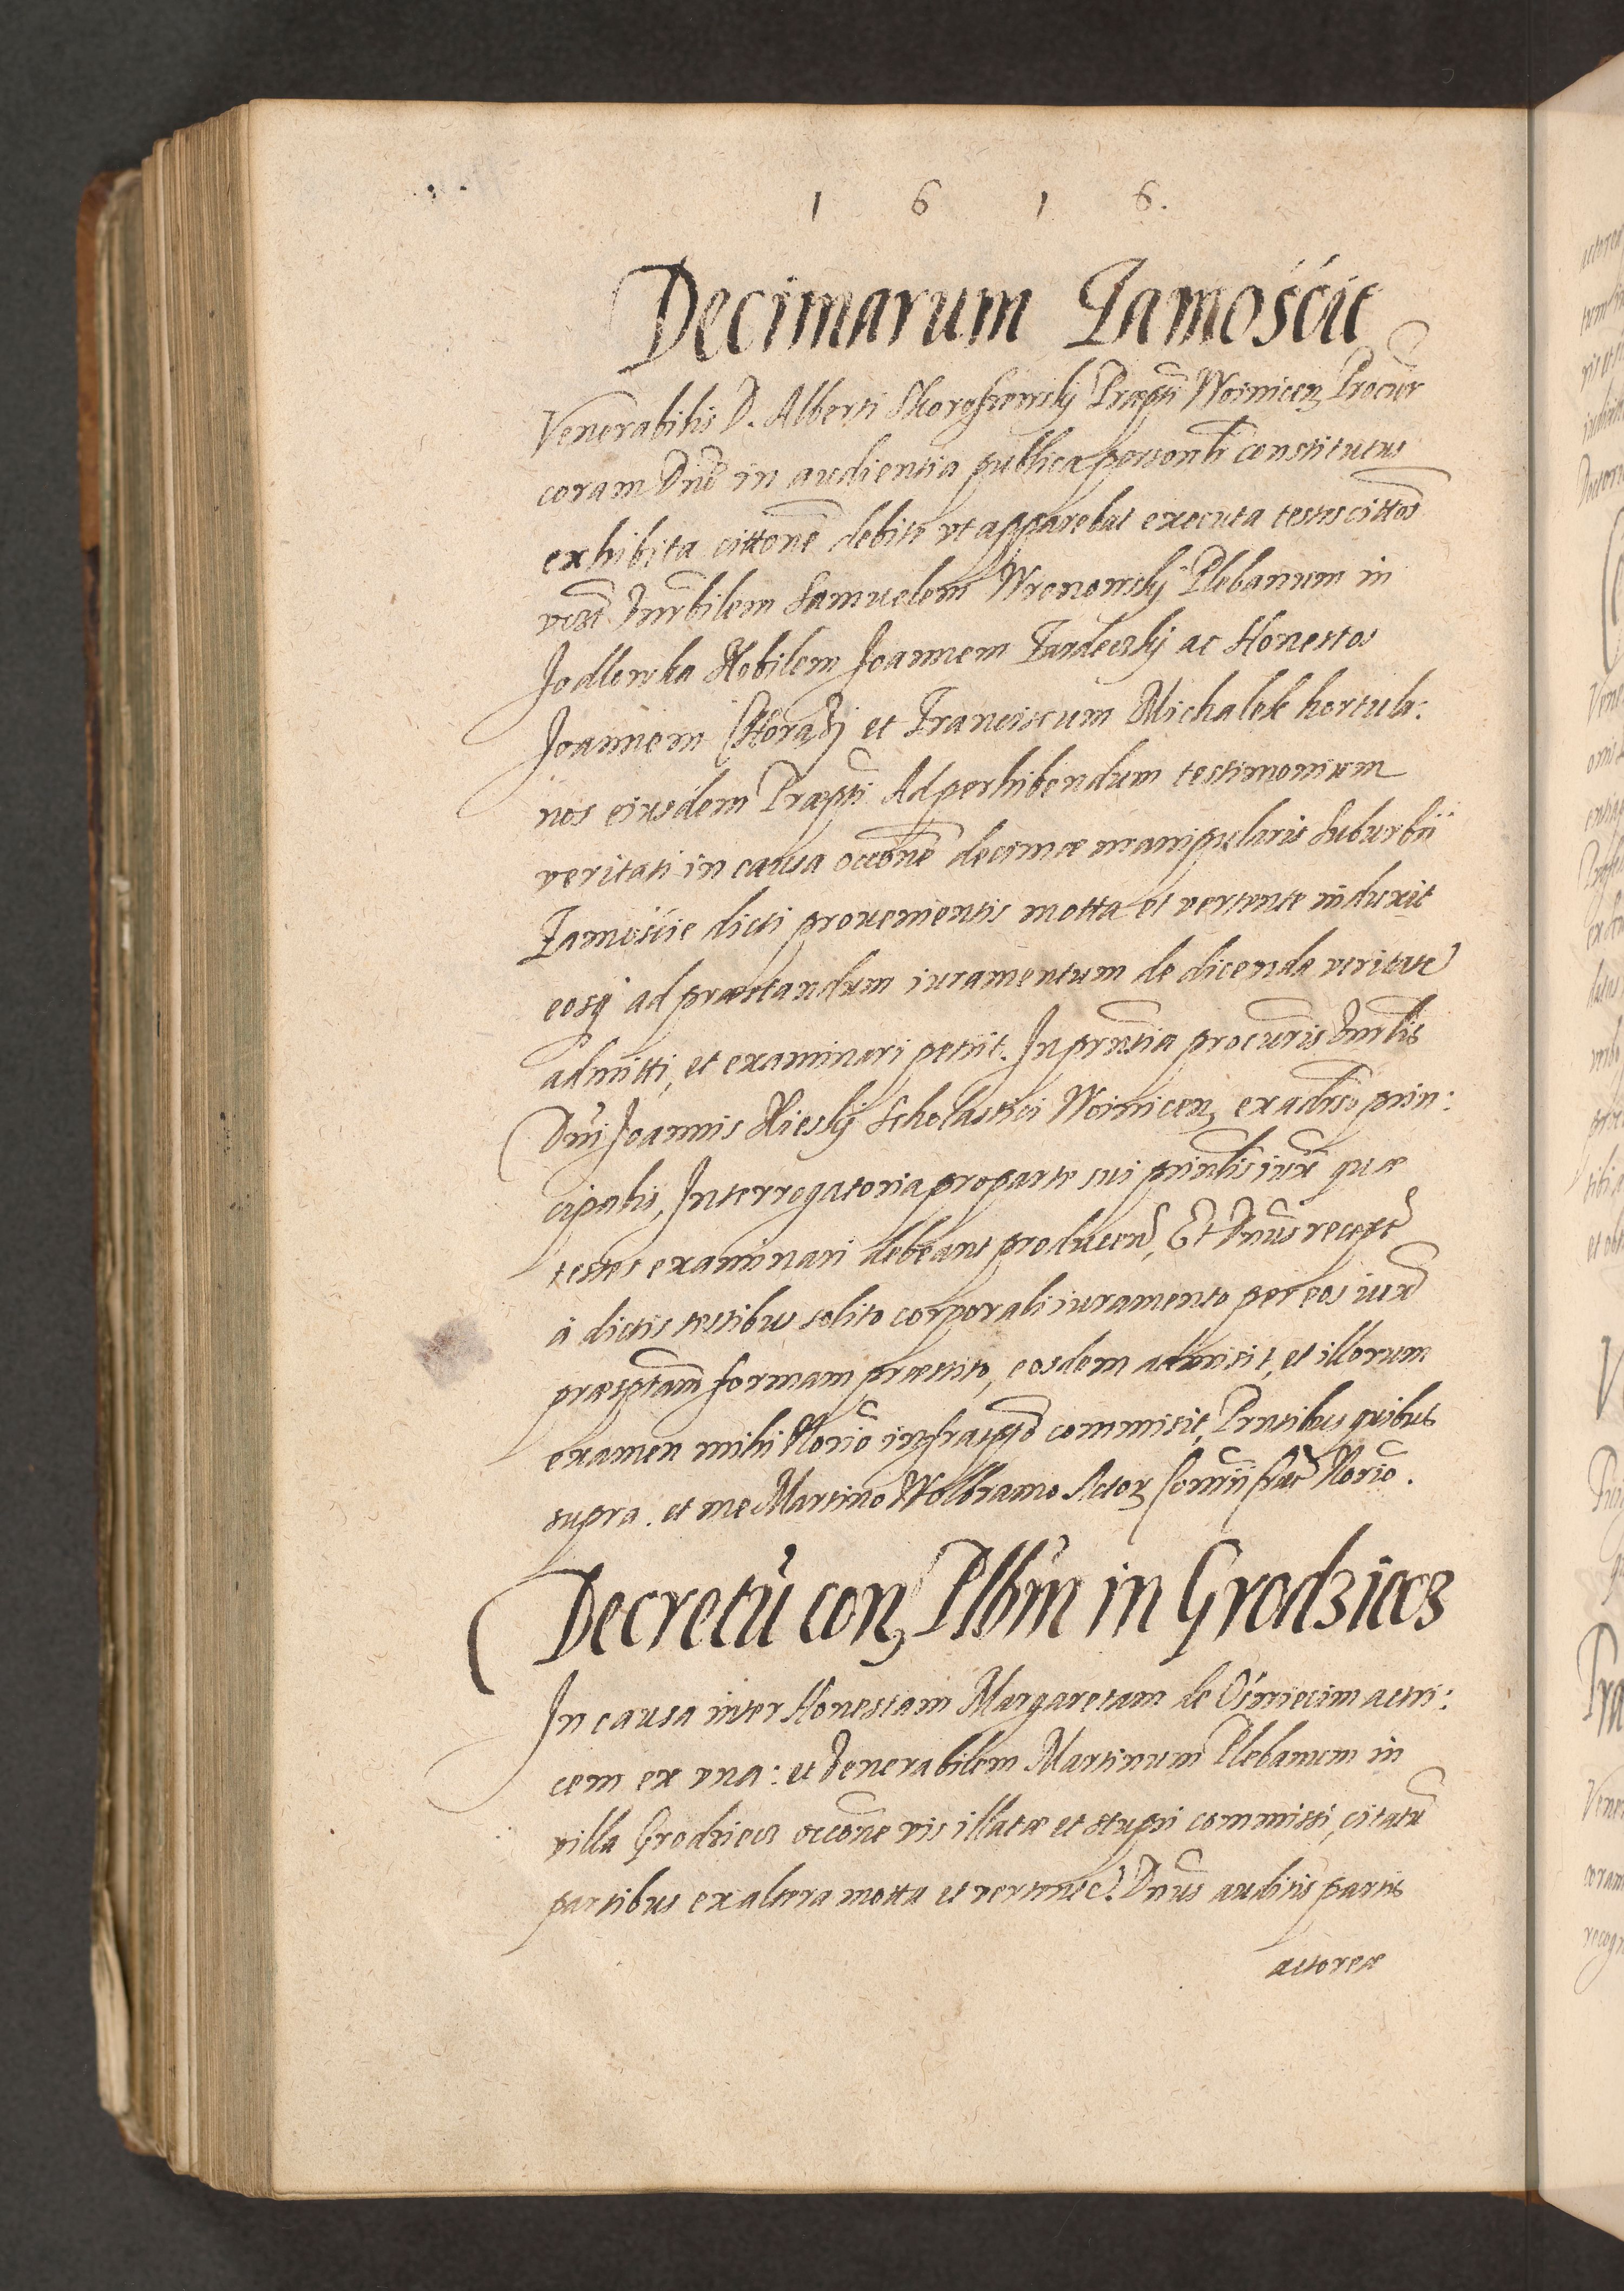 1 6 1 6.
Decimarum Zamoście
Venerabilis D. Alberti Skoroszewskij Præpti Woinicen Procur
coram Dno in audientia publica personlr constitutus
exhibita cittone debite ut apparebat executa testes cittos
vezt Vnrbilem Samuelem Wronowskij Plebanum in
Jodlowka Nobilem Joannem Zardeczkij ac Honestos
Joannem et Franciscum Michalek hortula:
nos eiusdem Præpti Ad perhibendum testimonium
veritati in causa occone decimæ manipularis Suburbii
Zamoście dicti prouenientis motta et vertente induxit
eosq ad præstandum iuramentum de dicenda veritate
admitti, et examinari petiit. In prntia procuris Vnrblis
Dni Joannis Kieskij Scholastici Woinicen, ex aduso prin:
cipalis, Interrogatoria pro parte sui prinlis iux quæ
testes examinari debeant producen, Et Dnus recepto
à dictis testibus solito corporali iuramento per eos iux
præsptam formam præstito, eosdem admisit, et illorum
examen mihi Norio infrascpto commisit, Prntibus quibus
supra. et me Martino Wolbramo Actor Norio.
Decretu con Plbm in Grodziecz
In causa inter Honestam Margaretam de Oświecim actri:
cem ex vna: et Venerabilem Martinum Plebanum in
villa Grodziecz occone vis illatæ et stupri commissi, citatu
partibus ex altera motta et vertente. Dnus auditis partis
actoreæ